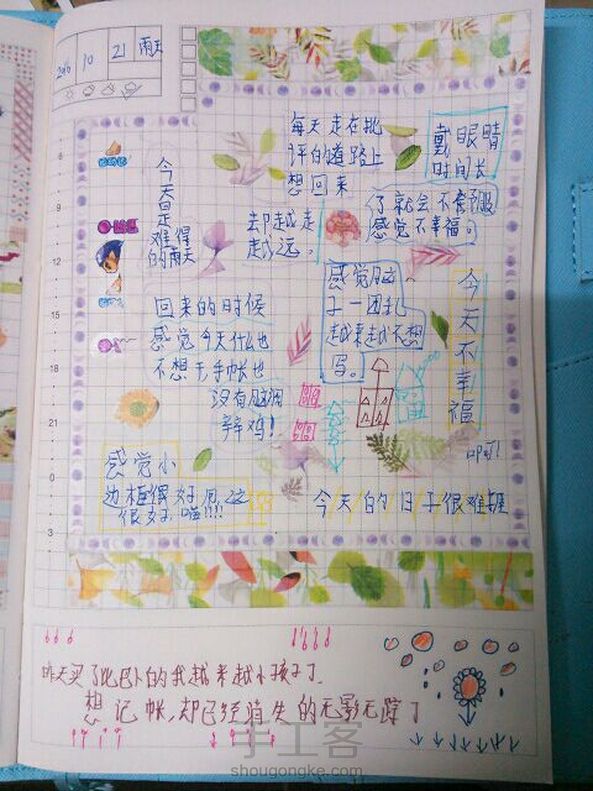 2016 10 21 雨天
每天走在批
评的道路上
想回来
却越走
越远。
戴眼睛
时间长
了就会不舒服
感觉不幸福。
6
9
12
15
18
21
0
3
今天是
难得
的雨天
感觉脑
子一团乱
越来越不想
写。
今天不幸福
回来的时候
感觉今天什么也
不想干,手帐也
没有脑洞
辣鸡!
感觉小
边框很好用,这
很好喵!!!!
今天的日子很难捱
昨天买了比巴卜的我越来越小孩子了
想记帐,却已经消失的无影无踪了
手工客
shougongke.com